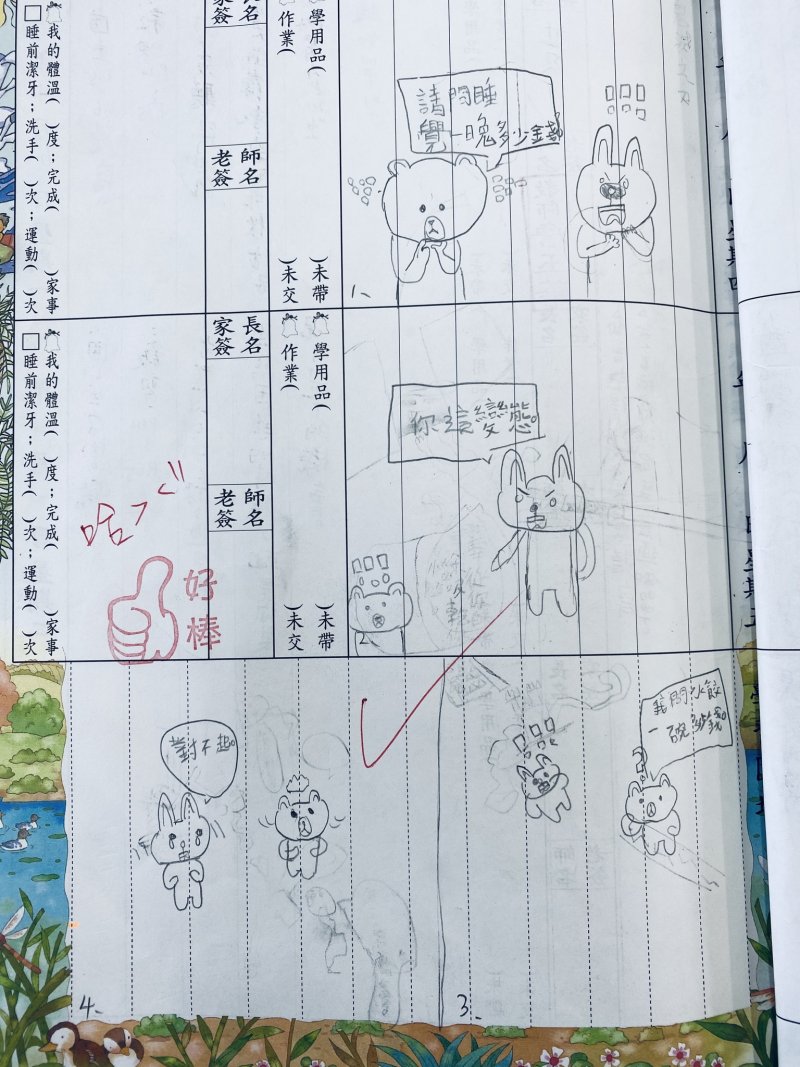 請問睡
覺一晚多少錢
1、
學用品(　　)未帶
作業(　　)未交
家長簽名
老師簽名
我的體溫(　)度；完成(　)家事
□睡前潔牙；洗手(　)次；運動(　)次
你這變態。
2、
學用品(　　)未帶
作業(　　)未交
家長簽名
老師簽名
我的體溫(　)度；完成(　)家事
□睡前潔牙；洗手(　)次；運動(　)次
好棒
請問水餃
一碗多少錢。
3、
對不起。
4、